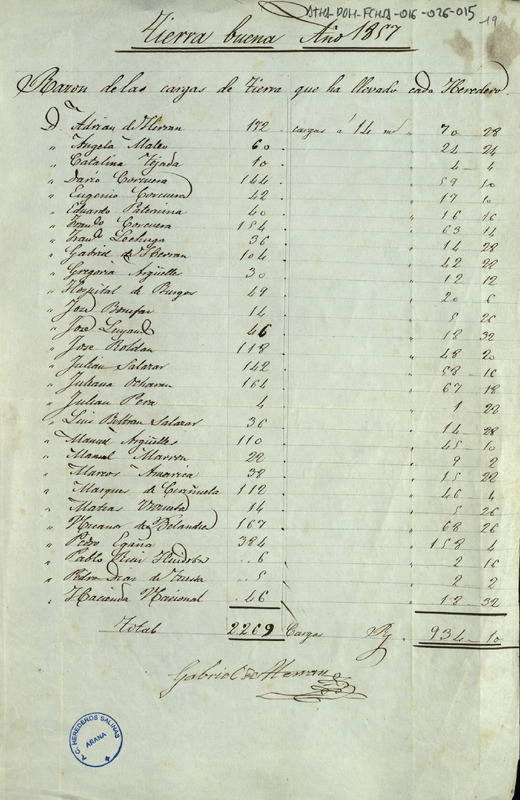 ATHA-DOH-FCHSA-016-026-015
19
Tierra buena Año 1857
Razon de las cargas de Tierra que ha llevado cada Heredero.
Dn. Adrian de Herran 172 cargas á 14 ms 70 28
" Angela Mateo 60 " 24 24
" Catalina Tejada 10 " 4 4
" Dario Corcuera 144 " 59 10
" Eugenio Corcuera 42 " 17 10
" Eduardo Paternina 40 " 16 16
" Franco Corcuera 154 " 63 14
" Franco Lechuga 36 " 14 28
" Gabriel de Herran 104 " 42 28
" Gregoria Argüelles 30 " 12 12
" Hospital de Burgos 49 " 20 6
" José Bonifaz 14 " 5 26
" José Luyando 46 " 18 32
" José Roldan 118 " 48 20
" Julian Salazar 142 " 58 16
" Juliana Ocharan 164 " 67 18
" Julian Pera 4 " 1 22
" Luis Beltran Salazar 36 " 14 28
" Manuel Argüelles 110 " 45 10
" Manuel Marron 22 " 9 2
" Marcos America 38 " 15 22
" Marques de Cirañuela 112 " 46 4
" Matea 14 " 5 26
" Nicanor de Bolandia 167 " 68 26
" Pedro Egaña 384 " 158 4
" Pablo Ruiz Huidobro 6 " 2 16
" Pedro Diaz de 5 " 2 2
" Hacienda Nacional 46 " 18 32
Total 2269 Cargas " 934 10
Gabriel de Herran
A.C. HEREDEROS SALINAS
ARANA